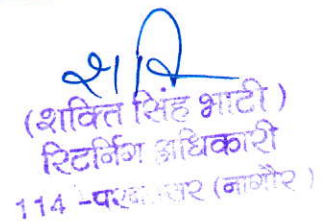 (शक्ति सिंह भाटी)
रिटर्निंग अधिकारी
114 -परबतसर (नागौर)